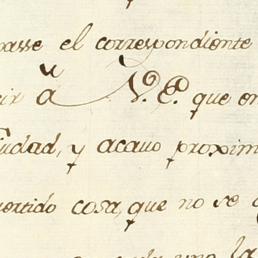 passe el correspondiente
cir á V. E. que en
iudad, y acavo proxim
vertido cosa, que no se